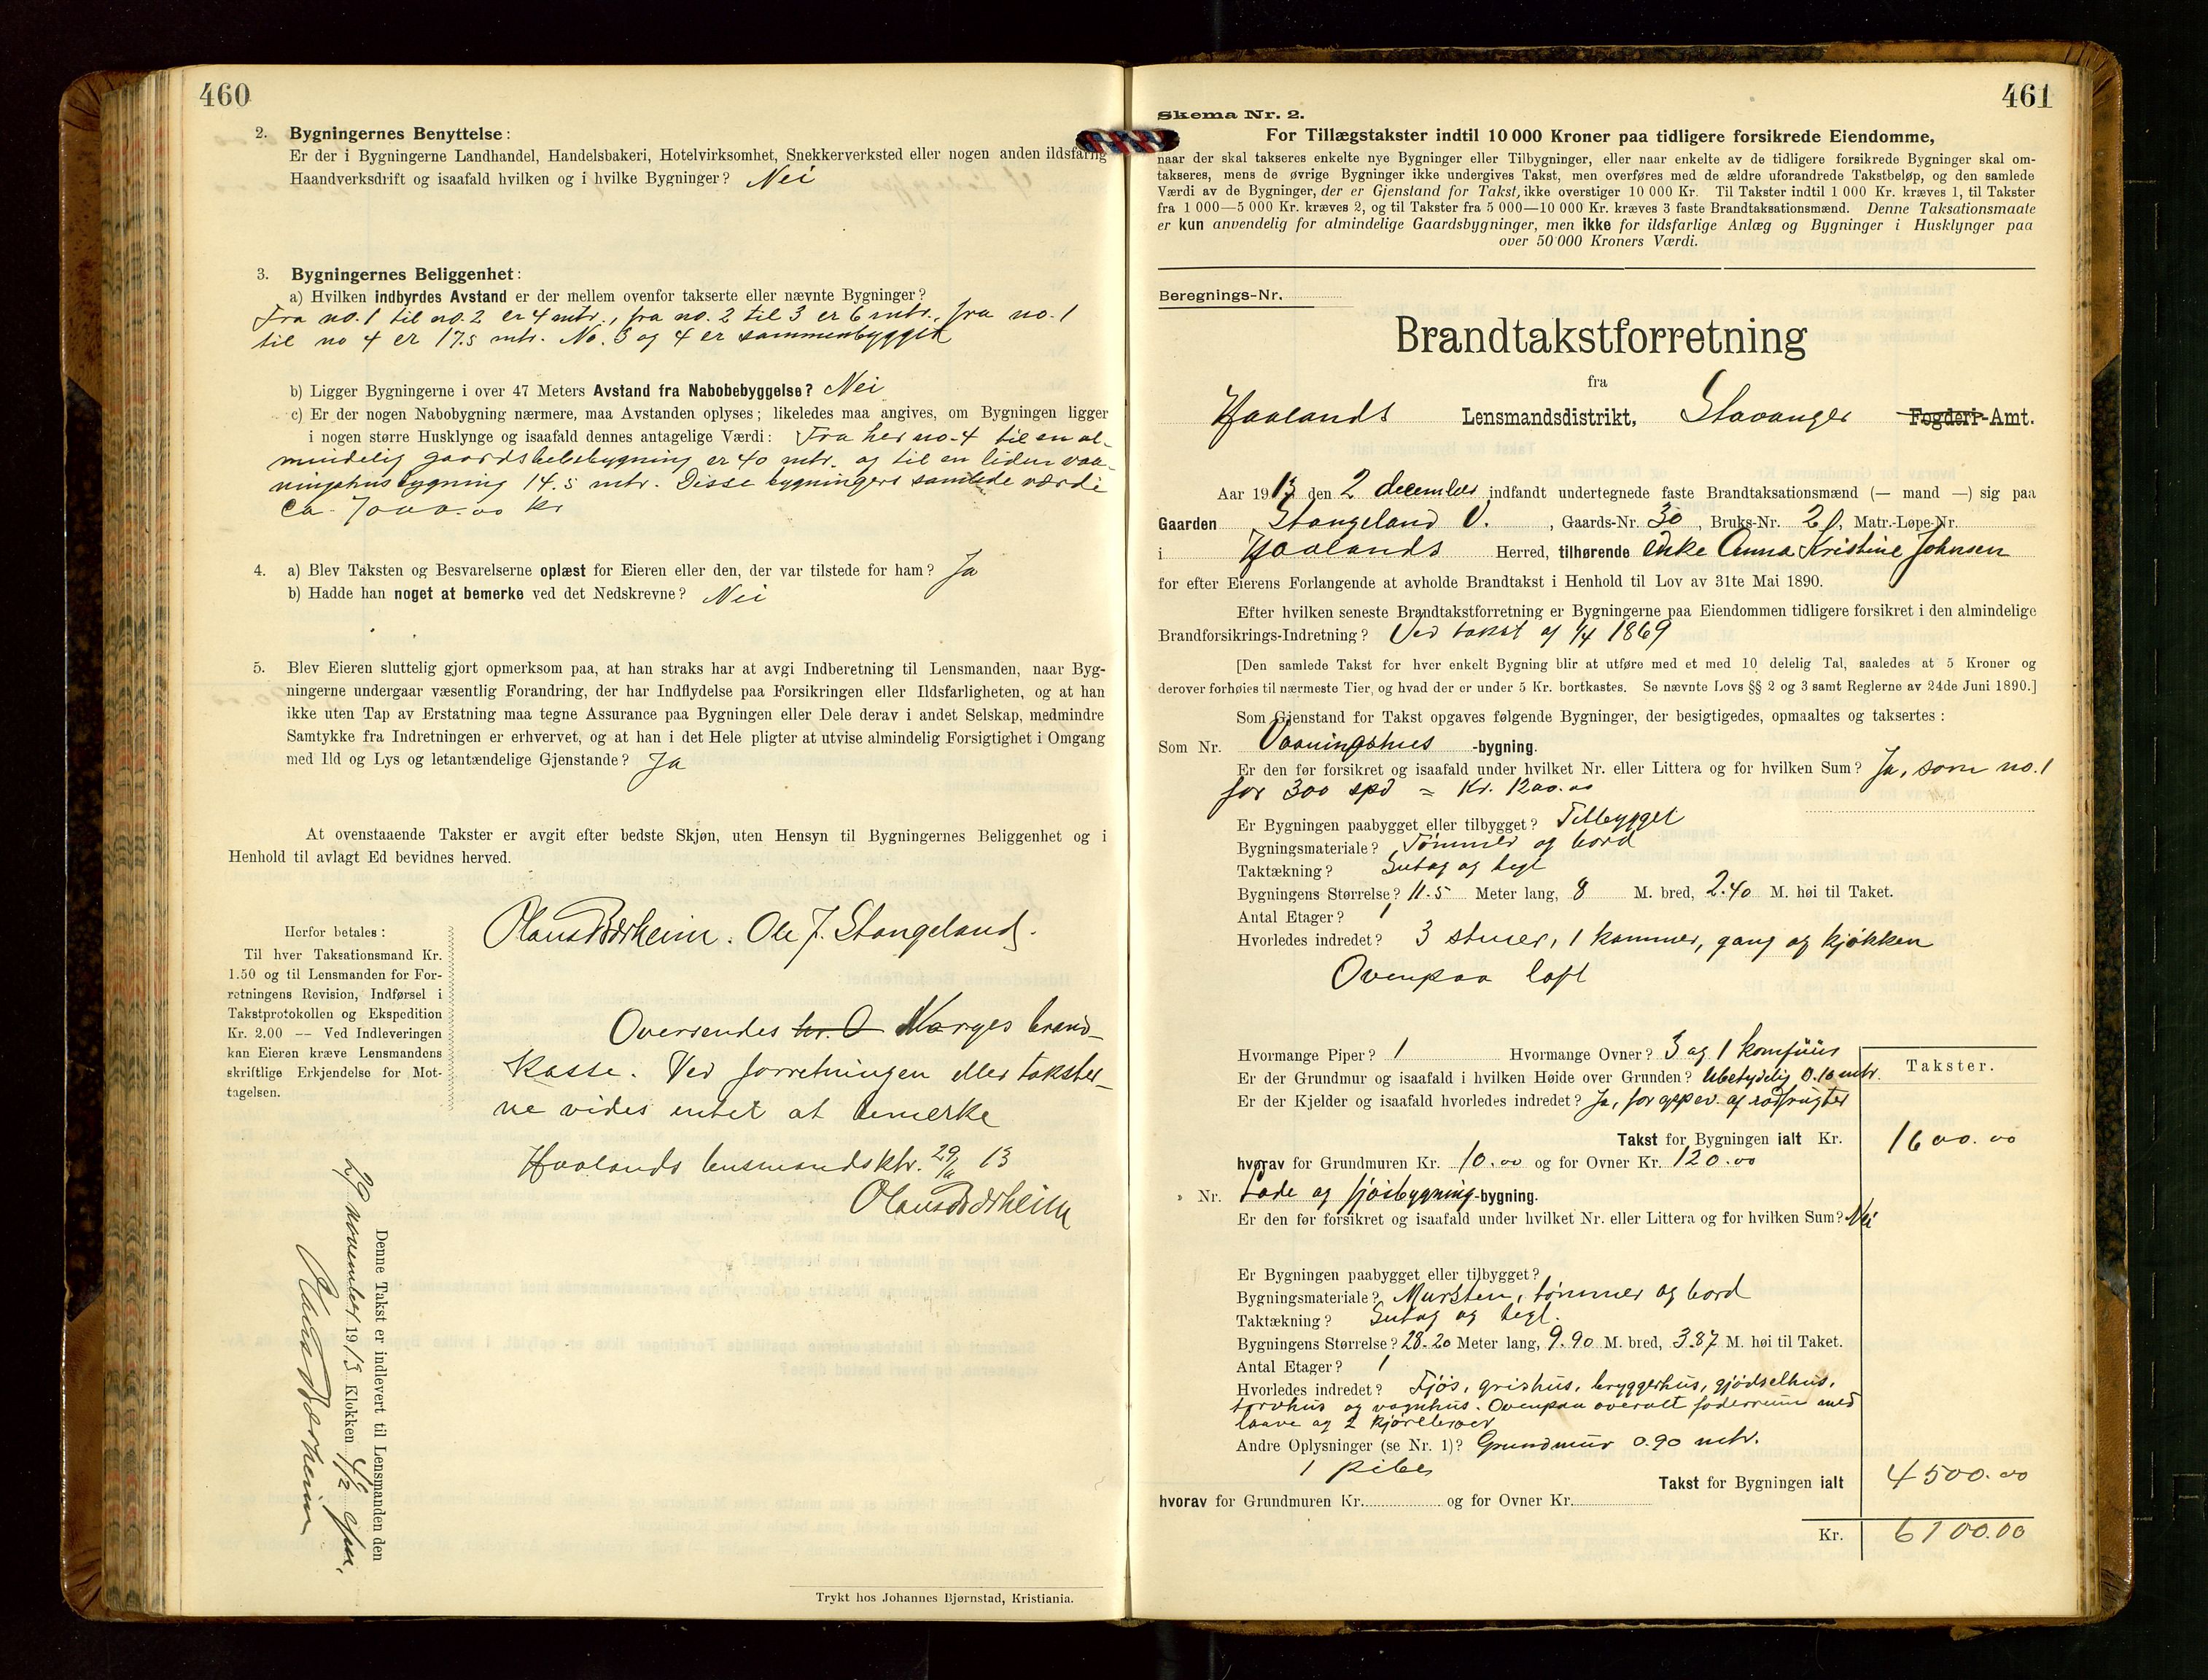 460
2. Bygningernes Benyttelse:
Er der i Bygningerne Landhandel, Handelsbakeri, Hotelvirksomhet, Snekkerverksted eller nogen anden ildsfarlig
Haandverksdrift og isaafald hvilken og i hvilke Bygninger? Nei
3. Bygningernes Beliggenhet:
a) Hvilken indbyrdes Avstand er der mellem ovenfor takserte eller nævnte Bygninger?
Fra no. 1 til no. 2 er 4 mtr., fra no. 2 til 3 er 6 mtr., fra no. 1
til no 4 er 17.5 mtr. No. 3 og 4 er sammenbygget
b) Ligger Bygningerne i over 47 Meters Avstand fra Nabobebyggelse? Nei
c) Er der nogen Nabobygning nærmere, maa Avstanden oplyses; likeledes maa angives, om Bygningen ligger
i nogen større Husklynge og isaafald dennes antagelige Værdi: Fra hus no. 4 til en al-
mindelig gaardsbebygning er 40 mtr. og til en liden vaa-
ningshusbygning 14.5 mtr. Disse bygningers samlede værdi
Ca. 7000.00 Kr
4. a) Blev Taksten og Besvarelserne oplæst for Eieren eller den, der var tilstede for ham? Ja
b) Hadde han noget at bemerke ved det Nedskrevne? Nei
5. Blev Eieren sluttelig gjort opmerksom paa, at han straks har at avgi Indberetning til Lensmanden, naar Byg-
ningerne undergaar væsentlig Forandring, der har Indflydelse paa Forsikringen eller Ildsfarligheten, og at han
ikke uten Tap av Erstatning maa tegne Assurance paa Bygningen eller Dele derav i andet Selskap, medmindre
Samtykke fra Indretningen er erhvervet, og at han i det Hele pligter at utvise almindelig Forsigtighet i Omgang
med Ild og Lys og letantændelige Gjenstande? Ja
At ovenstaaende Takster er avgit efter bedste Skjøn, uten Hensyn til Bygningernes Beliggenhet og i
Henhold til avlagt Ed bevidnes herved.
Olaus Bærheim. Ole J. Stangeland.
Herfor betales:
Til hver Taksationsmand Kr.
1.50 og til Lensmanden for For-
retningens Revision, Indførsel i
Takstprotokollen og Ekspedition
Kr. 2.00 — Ved Indleveringen
kan Eieren kræve Lensmandens
skriftlige Erkjendelse for Mot-
tagelsen.
Oversendes hr. O Norges brand-
kasse. Ved forretningen eller takster-
ne vides intet at bemerke
Haalands lensmandsktr. 29/11 13
Olaus Bærheim
Denne Takst er indlevert til Lensmanden den
29 november 1913 Klokken 4 1/2 efm.
Olaus Bærheim
Trykt hos Johannes Bjørnstad, Kristiania.
461
Skema Nr. 2.
For Tillægstakster indtil 10 000 Kroner paa tidligere forsikrede Eiendomme,
naar der skal takseres enkelte nye Bygninger eller Tilbygninger, eller naar enkelte av de tidligere forsikrede Bygninger skal om-
takseres, mens de øvrige Bygninger ikke undergives Takst, men overføres med de ældre uforandrede Takstbeløp, og den samlede
Værdi av de Bygninger, der er Gjenstand for Takst, ikke overstiger 10 000 Kr. Til Takster indtil 1 000 Kr. kræves 1, til Takster
fra 1 000—5 000 Kr. kræves 2, og til Takster fra 5 000—10 000 Kr. kræves 3 faste Brandtaksationsmænd. Denne Taksationsmaate
er kun anvendelig for almindelige Gaardsbygninger, men ikke for ildsfarlige Anlæg og Bygninger i Husklynger paa
over 50 000 Kroners Værdi.
Beregnings-Nr.
Brandtakstforretning
fra
Haalands Lensmandsdistrikt, Stavanger Fogderi-Amt.
Aar 1913 den 2 december indfandt undertegnede faste Brandtaksationsmænd (— mand —) sig paa
Gaarden Stangeland V. , Gaards-Nr. 30 , Bruks-Nr. 20, Matr.-Løpe-Nr.
i Haalands Herred, tilhørende enke Anna Kristine Johnsen
for efter Eierens Forlangende at avholde Brandtakst i Henhold til Lov av 31te Mai 1890.
Efter hvilken seneste Brandtakstforretning er Bygningerne paa Eiendommen tidligere forsikret i den almindelige
Brandforsikrings-Indretning? Ved takst af 1/4 1869
[Den samlede Takst for hver enkelt Bygning blir at utføre med et med 10 delelig Tal, saaledes at 5 Kroner og
derover forhøies til nærmeste Tier, og hvad der er under 5 Kr. bortkastes. Se nævnte Lovs §§ 2 og 3 samt Reglerne av 24de Juni 1890.]
Som Gjenstand for Takst opgaves følgende Bygninger, der besigtigedes, opmaaltes og taksertes:
Som Nr. Vaaningshus -bygning.
Er den før forsikret og isaafald under hvilket Nr. eller Littera og for hvilken Sum? Ja, som no. 1
for 300 spd = Kr. 1200.00
Er Bygningen paabygget eller tilbygget? Tilbygget
Bygningsmateriale? Tømmer og bord
Taktækning? Sutag og tegl
Bygningens Størrelse? 11.5 Meter lang, 8 M. bred, 2.40 M. høi til Taket.
Antal Etager? 1
Hvorledes indredet? 3 stuer, 1 kammer, gang og kjøkken
Ovenpaa loft
Hvormange Piper? 1 Hvormange Ovner? 3 og 1 komfüir
Er der Grundmur og isaafald i hvilken Høide over Grunden? Ubetydelig 0.10 mtr.
Er der Kjelder og isaafald hvorledes indredet? Ja, for opbev. af rodfrugter
Takster.
Takst for Bygningen ialt Kr. 1600.00
hvorav for Grundmuren Kr. 10.00 og for Ovner Kr. 120.00
" Nr. Lade og fjøsbygning-bygning.
Er den før forsikret og isaafald under hvilket Nr. eller Littera og for hvilken Sum? Nei
Er Bygningen paabygget eller tilbygget?
Bygningsmateriale? Mursten, tømmer og bord
Taktækning? Sutag og tegl.
Bygningens Størrelse? 28.20 Meter lang, 9.90 M. bred, 3.87 M. høi til Taket.
Antal Etager? 1
Hvorledes indredet? Fjøs, grishus, bryggerhus, gjødselhus,
torvhus og vognhus. Ovenpaa overalt foderrum med
laave og 2 kjørebroer
Andre Oplysninger (se Nr. 1)? Grundmur 0.90 mtr.
1 pibe
Takst for Bygningen ialt 4500.00
hvorav for Grundmuren Kr. og for Ovner Kr.
Kr. 6100.00